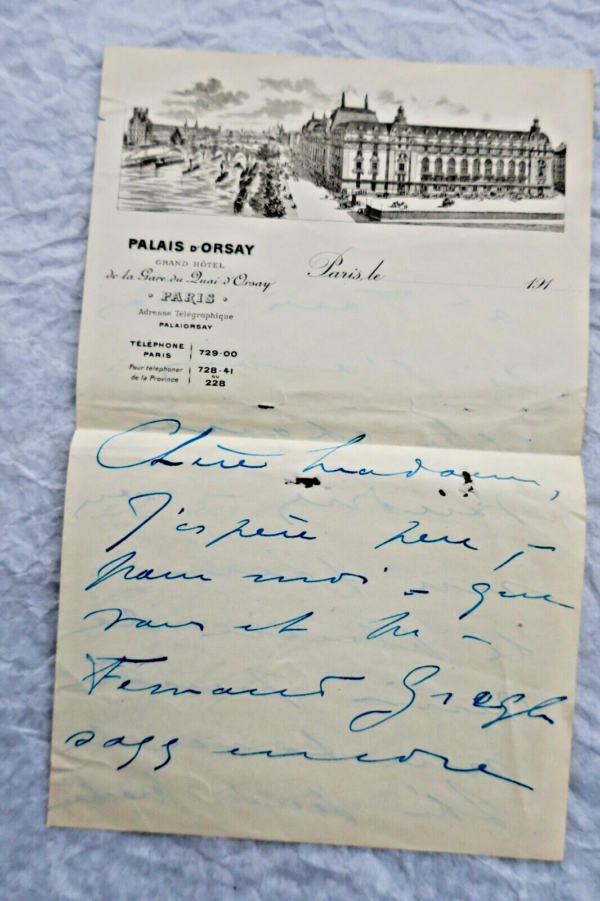 PALAIS D'ORSAY
GRAND HÔTEL
de la Gare du Quai d'Orsay
• PARIS •
Adresse Télégraphique
PALAIORSAY
TÉLÉPHONE PARIS 729-00
Pour téléphoner de la Province 728-41 ou 228
Paris, le 191
Chère Madame,
J'espère peu, –
pour moi – que
vous et Mr –
Fernand Gregh
soyez encore